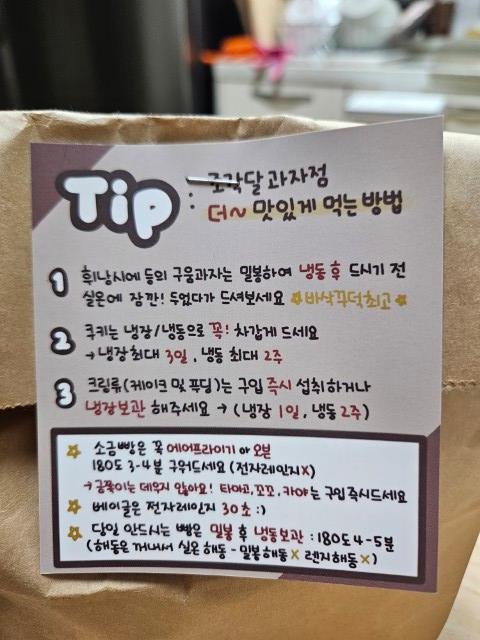 Tip : 조각달 과자점
더~ 맛있게 먹는 방법
1 휘낭시에 등의 구움과자는 밀봉하여 냉동 후 드시기 전
실온에 잠깐! 두었다가 드셔보세요 ☆바삭꾸덕최고☆
2 쿠키는 냉장/냉동으로 꼭! 차갑게 드세요
→ 냉장최대 3일, 냉동 최대 2주
3 크림류(케이크 및 푸딩)는 구입 즉시 섭취하거나
냉장보관 해주세요 → (냉장 1일, 냉동 2주)
☆ 소금빵은 꼭 에어프라이기 or 오븐
180도 3-4분 구워드세요 (전자레인지X)
→ 금쪽이는 데우지 않아요! 타마고, 꼬꼬, 카야는 구입즉시드세요
☆ 베이글은 전자레인지 30초 :)
☆ 당일 안드시는 빵은 밀봉 후 냉동보관 : 180도 4-5분
(해동은 꺼내서 실온 해동 - 밀봉해동 X 렌지해동 X)